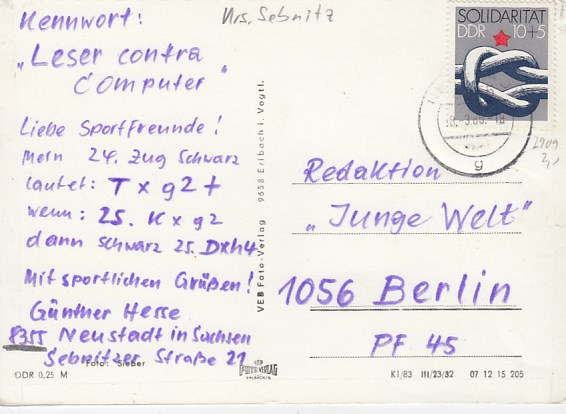 Krs. Sebnitz
Kennwort:
„Leser contra
Computer"
Liebe Sportfreunde!
Mein 24. Zug Schwarz
lautet: T x g2 +
wenn: 25. K x g2
dann schwarz 25. Dxh4
Mit sportlichen Grüßen!
Günther Hesse
8355 Neustadt in Sachsen
Sebnitzer Straße 21
Foto: Sieber
DDR 0,25 M
VEB Foto-Verlag 9658 Erlbach i. Vogtl.
VEB
FOTO-VERLAG
ERLBACH/V.
SOLIDARITÄT
DDR 10+5
g
Redaktion
„Junge Welt"
1056 Berlin
PF 45
K1/83 III/23/32 07 12 15 205